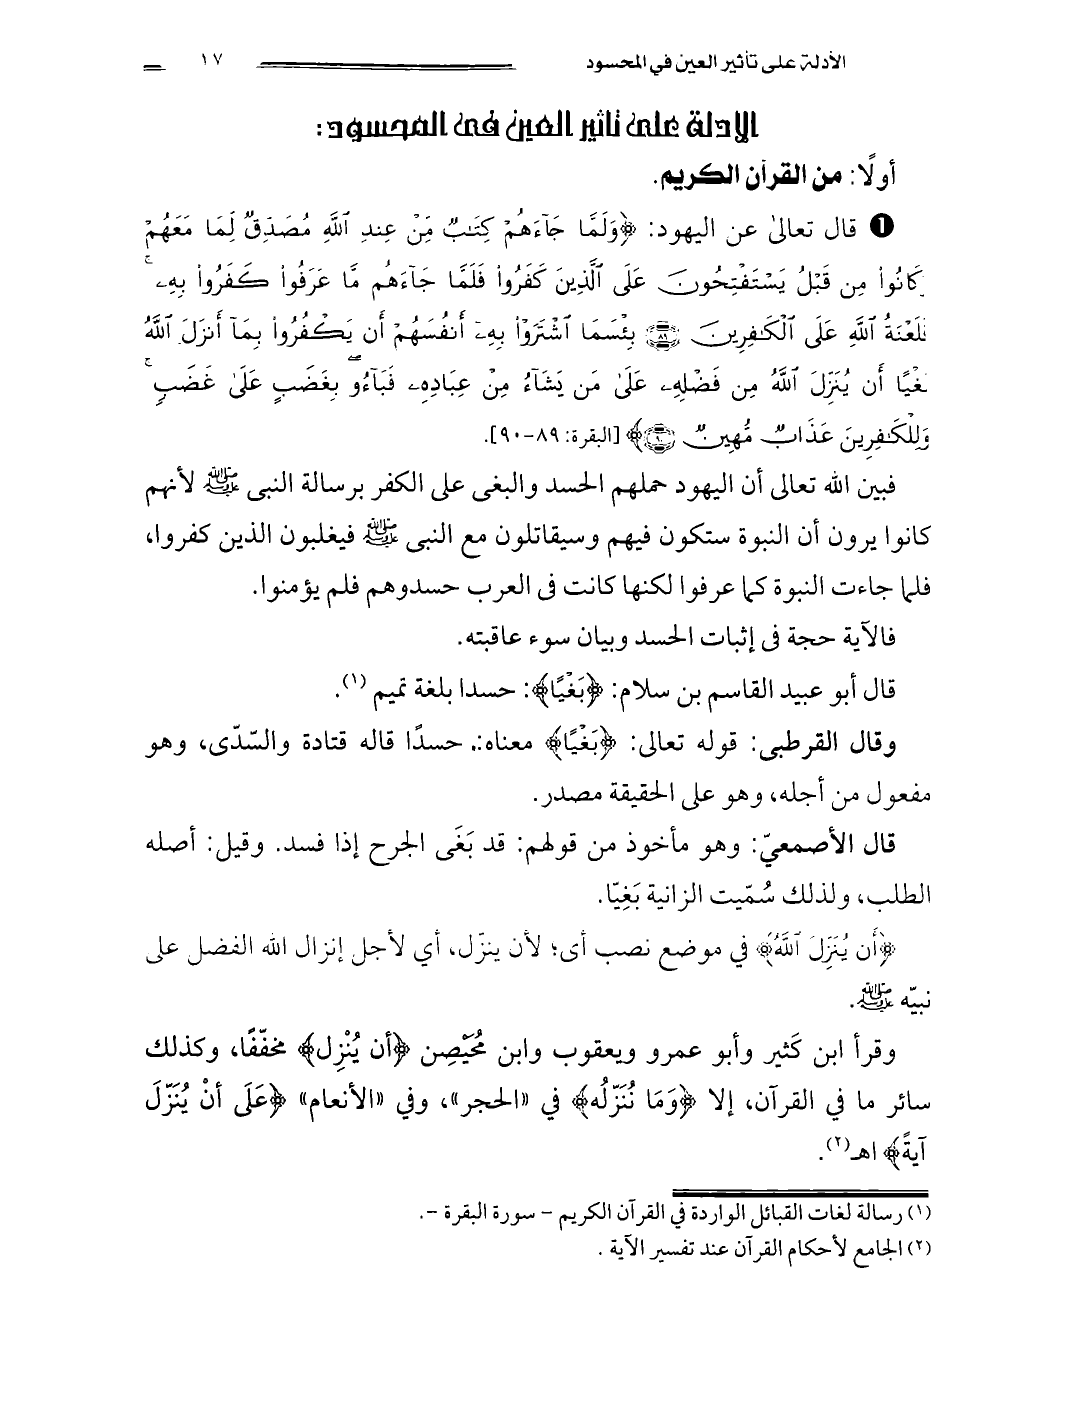 الأدلة على تأثير العين في المحسود ١٧
الأدلة على تأثير العين في المحسود:
أولًا: من القرآن الكريم.
❶ قال تعالىٰ عن اليهود: ﴿وَلَمَّا جَآءَهُمْ كِتَٰبٌ مِّنْ عِندِ ٱللَّهِ مُصَدِّقٌ لِّمَا مَعَهُمْ
كَانُوا۟ مِن قَبْلُ يَسْتَفْتِحُونَ عَلَى ٱلَّذِينَ كَفَرُوا۟ فَلَمَّا جَآءَهُم مَّا عَرَفُوا۟ كَفَرُوا۟ بِهِۦ ۚ
لَعْنَةُ ٱللَّهِ عَلَى ٱلْكَٰفِرِينَ ٨٩ بِئْسَمَا ٱشْتَرَوْا۟ بِهِۦٓ أَنفُسَهُمْ أَن يَكْفُرُوا۟ بِمَآ أَنزَلَ ٱللَّهُ
بَغْيًا أَن يُنَزِّلَ ٱللَّهُ مِن فَضْلِهِۦ عَلَىٰ مَن يَشَآءُ مِنْ عِبَادِهِۦ فَبَآءُو بِغَضَبٍ عَلَىٰ غَضَبٍ ۚ
وَلِلْكَٰفِرِينَ عَذَابٌ مُّهِينٌ ٩٠﴾ [البقرة: ٨٩-٩٠].
فبين الله تعالى أن اليهود حملهم الحسد والبغى على الكفر برسالة النبى ﷺ لأنهم
كانوا يرون أن النبوة ستكون فيهم وسيقاتلون مع النبى ﷺ فيغلبون الذين كفروا،
فلما جاءت النبوة كما عرفوا لكنها كانت فى العرب حسدوهم فلم يؤمنوا.
فالآية حجة فى إثبات الحسد وبيان سوء عاقبته.
قال أبو عبيد القاسم بن سلام: ﴿بَغْيًا﴾: حسدا بلغة تميم (١).
وقال القرطبى: قوله تعالى: ﴿بَغْيًا﴾ معناه: حسدًا قاله قتادة والسّدّى، وهو
مفعول من أجله، وهو على الحقيقة مصدر.
قال الأصمعيّ: وهو مأخوذ من قولهم: قد بَغَى الجرح إذا فسد. وقيل: أصله
الطلب، ولذلك سُمّيت الزانية بَغِيّا.
﴿أَن يُنَزِّلَ ٱللَّهُ﴾ في موضع نصب أى؛ لأن ينزّل، أي لأجل إنزال الله الفضل على
نبيّه ﷺ.
وقرأ ابن كَثير وأبو عمرو ويعقوب وابن مُحَيْصِن ﴿أن يُنْزِل﴾ مخفّفًا، وكذلك
سائر ما في القرآن، إلا ﴿وَمَا نُنَزِّلُه﴾ في «الحجر»، وفي «الأنعام» ﴿عَلَى أنْ يُنَزِّلَ
آيةً﴾ اهـ(٢).
(١) رسالة لغات القبائل الواردة في القرآن الكريم - سورة البقرة -.
(٢) الجامع لأحكام القرآن عند تفسير الآية .